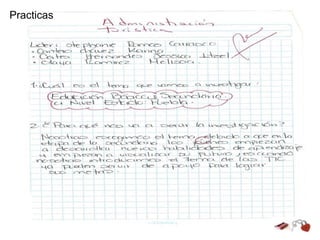 Practicas
Administración
turistica
Lider: Stephanie Ramos Carrasco.
• Cortero Chavez Karina
• Cortes Hernandez Jessica Itzel
• Olaya Ramirez Melissa.
1: Cual es el tema que vamos a investigar.
Educación Basica Secundaria
a Nivel Estado Puebla.
2: ¿Para qué nos va a servir la investigación?
Nosotros escogemos el tema debido a que en la
etapa de la secundaria los jovenes empiezan
a desarrollar nuevas habilidades de aprendizaje
y empiezan a visualizar su futuro es cuando
nosotros introducimos el tema de las TIC
ya pueden servir de apoyo para lograr
sus metas.